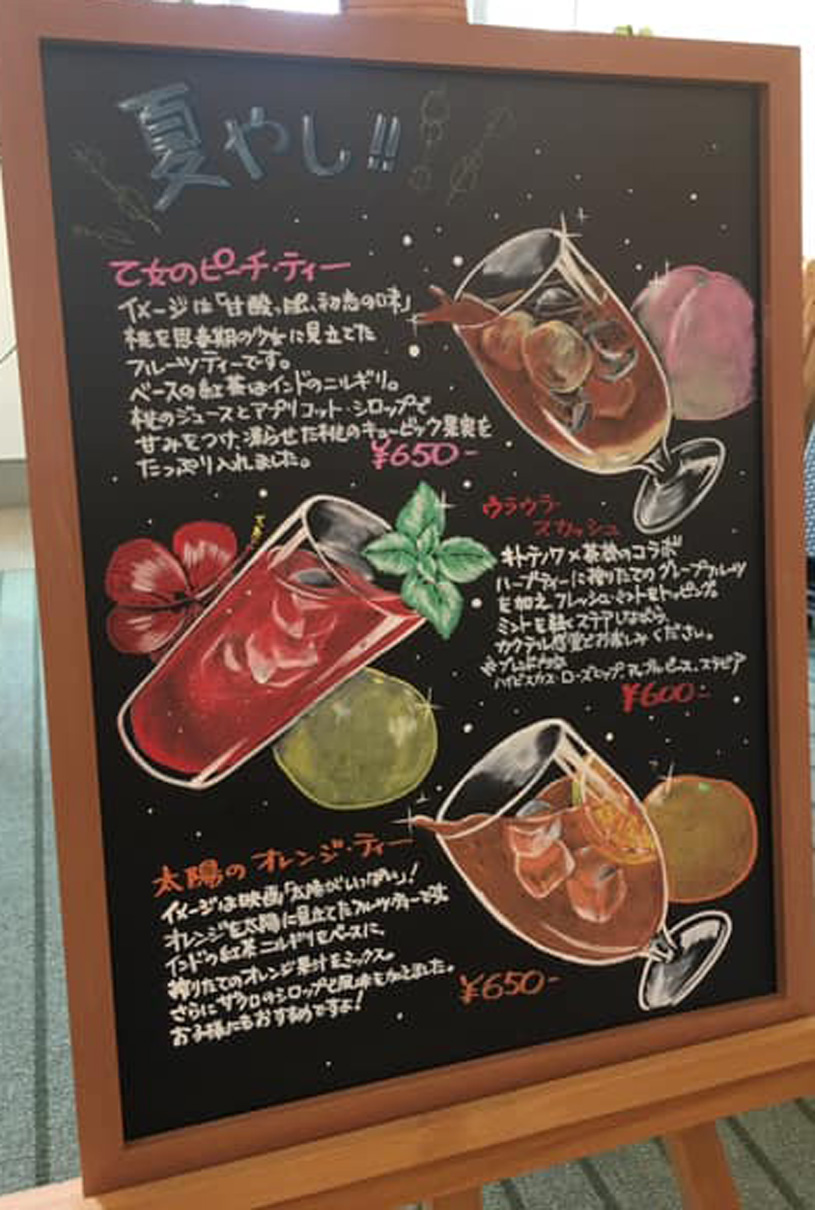 夏やし!!
乙女のピーチ・ティー
イメージは「甘酸っぱい初恋の味」
桃を思春期の少女に見立てた
フルーツティーです。
ベースの紅茶はインドのニルギリ。
桃のジュースとアプリコット・シロップで
甘みをつけ、凍らせた桃のキュービック果実を
たっぷり入れました。
¥650-
ウラウラ・
スカッシュ
キトテノワ×茶葉のコラボ
ハーブティーに搾りたてのグレープフルーツ
を加え、フレッシュ・ミントをトッピング。
ミントを軽くステアしながら、
カクテル感覚でお楽しみください。
※ブレンド内容
ハイビスカス・ローズヒップ、アップルピース、ステビア
¥600-
太陽の オレンジ・ティー
イメージは映画「太陽がいっぱい」!
オレンジを太陽に見立てたフルーツ・ティーです。
インドの紅茶ニルギリをベースに、
搾りたてのオレンジ果汁をミックス。
さらにザクロのシロップで風味を加えました。
お子様にもおすすめですよ!
¥650-